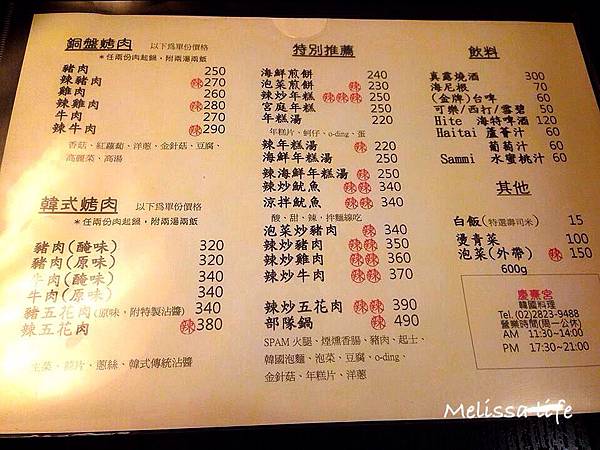 銅盤烤肉 以下為單份價格
*任兩份肉起鍋，附兩湯兩飯
豬肉 250
辣豬肉 辣 270
雞肉 260
辣雞肉 辣 280
牛肉 270
辣牛肉 辣 290
香菇、紅蘿蔔、洋蔥、金針菇、豆腐、
高麗菜、高湯
韓式烤肉 以下為單份價格
*任兩份肉起鍋，附兩湯兩飯
豬肉(醃味) 320
豬肉(原味) 320
牛肉(醃味) 340
牛肉(原味) 340
豬五花肉(原味，附特製沾醬) 340
辣五花肉 辣 380
生菜、蒜片、蔥絲、韓式傳統沾醬
特別推薦
海鮮煎餅 240
泡菜煎餅 辣 230
辣炒年糕 辣辣辣 200
宮庭年糕 200
年糕湯 220
年糕片、蚵仔、o-ding、蛋
辣年糕湯 辣 220
海鮮年糕湯 250
辣海鮮年糕湯 辣 250
辣炒魷魚 辣辣 340
涼拌魷魚 辣辣 340
酸、甜、辣，拌麵線吃
泡菜炒豬肉 辣 340
辣炒豬肉 辣辣 350
辣炒雞肉 辣辣 360
辣炒牛肉 辣辣 370
辣炒五花肉 辣辣 390
部隊鍋 辣 490
SPAM火腿、煙燻香腸、豬肉、起士、
韓國泡麵、泡菜、豆腐、o-ding、
金針菇、年糕片、洋蔥
飲料
真露燒酒 300
海尼根 70
(金牌)台啤 60
可樂/西打/雪碧 50
Hite 海特啤酒 120
Haitai 蘆薈汁 60
葡萄汁 60
Sammi 水蜜桃汁 60
其他
白飯(特選壽司米) 15
燙青菜 100
泡菜(外帶) 辣 150
600g
慶熹宮
韓國料理
Tel. (02)2823-9488
營業時間(周一公休)
AM 11:30~14:00
PM 17:30~21:00
Melissa life